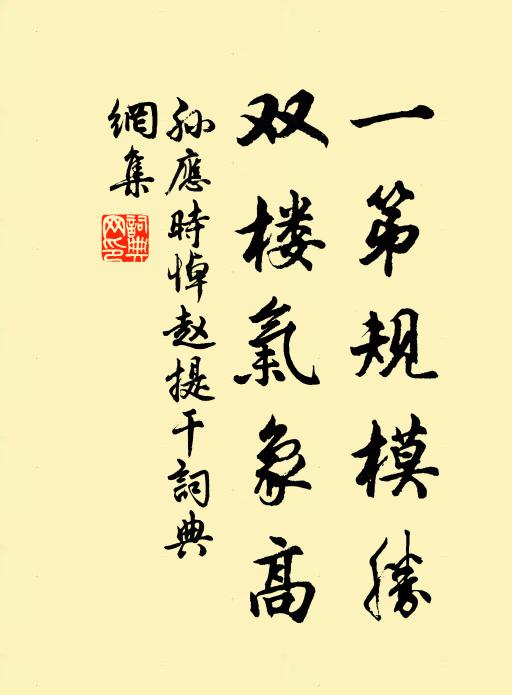 一第规模勝
双楼氣象高
孙應時悼赵提干詞典
網集
詞典
网印